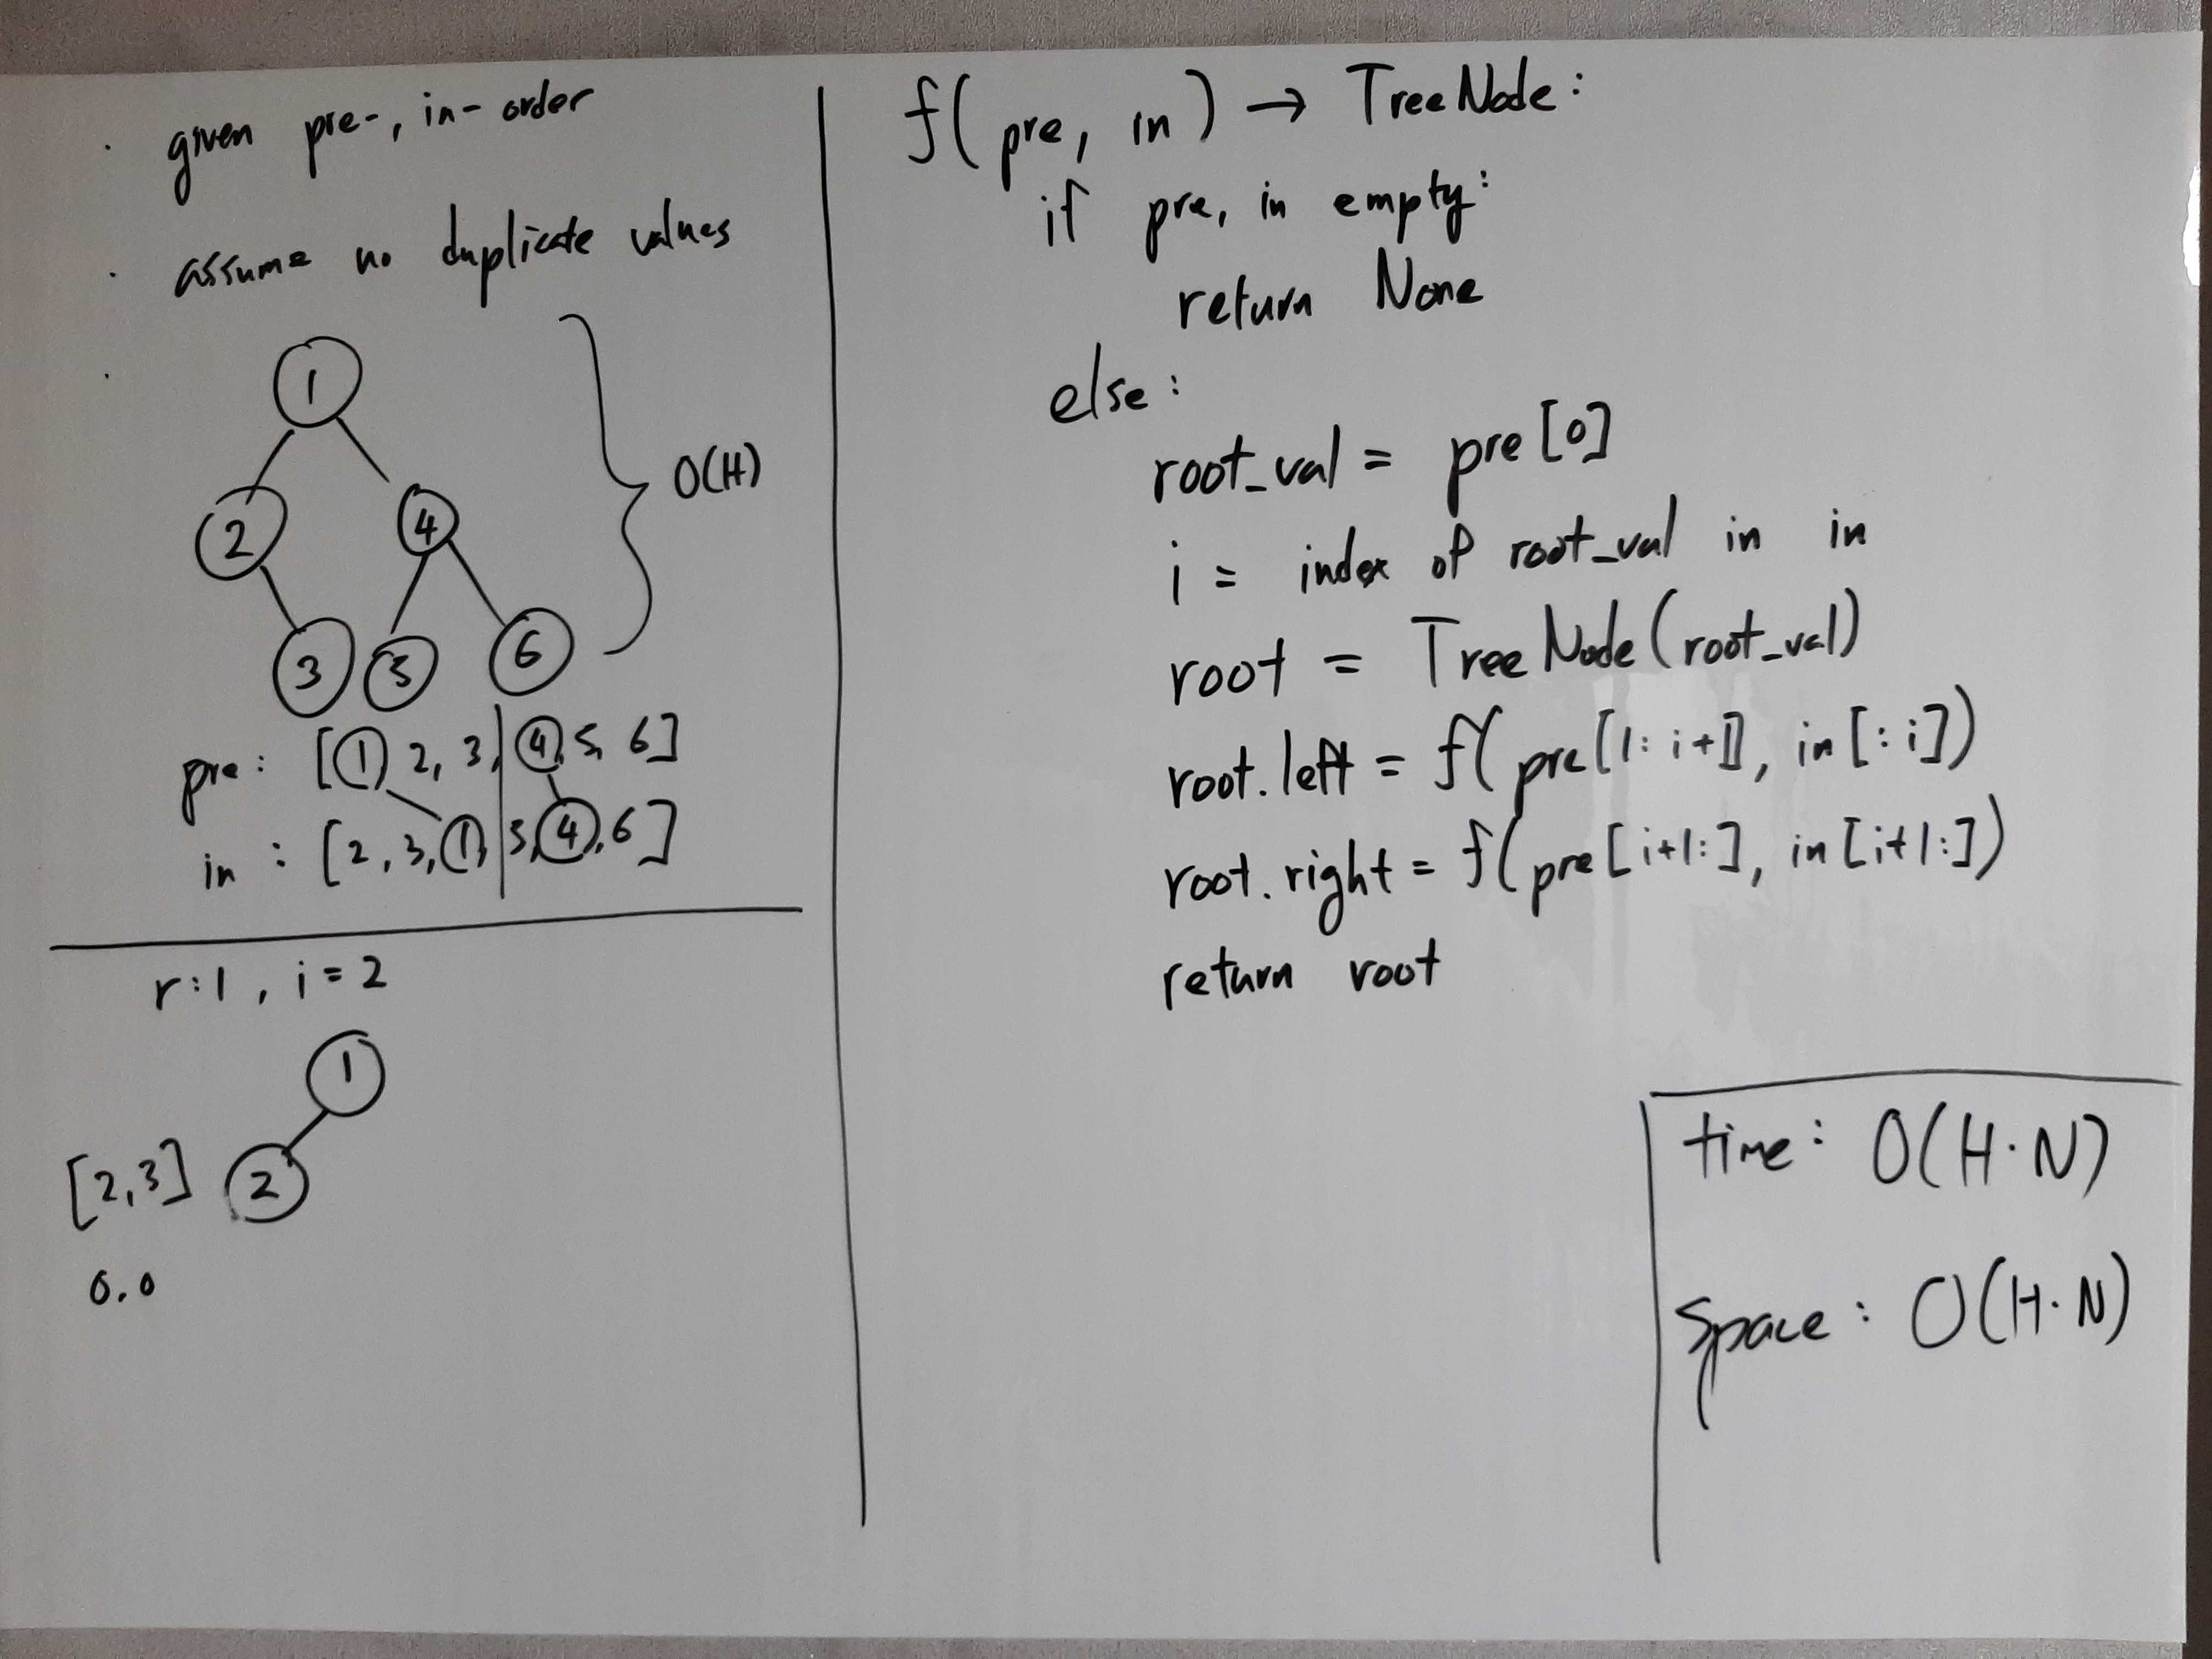 · given pre-, in-order
· assume no duplicate values
·
1
2 4
3 5 6
O(H)
pre: [1, 2, 3, 4, 5, 6]
in : [2, 3, 1, 5, 4, 6]
r:1, i=2
1
[2,3] 2
0.0
f(pre, in) → TreeNode:
if pre, in empty:
return None
else:
root_val = pre[0]
i = index of root_val in in
root = TreeNode(root_val)
root.left = f(pre[1:i+1], in[:i])
root.right = f(pre[i+1:], in[i+1:])
return root
time: O(H·N)
Space: O(H·N)